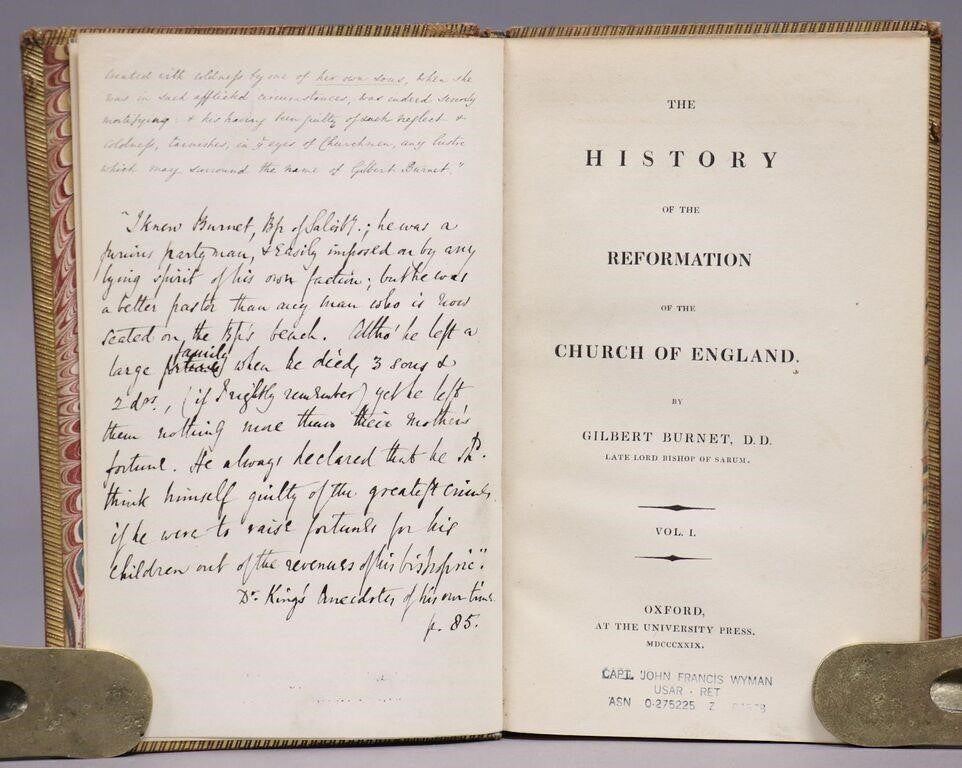 treated with coldness by one of her own sons, when she
was in such afflicted circumstances, was indeed severely
mortifying: & his having been guilty of such neglect &
coldness, tarnishes, in ye eyes of Churchmen, any lustre
which may surround the name of Gilbert Burnet."
"I knew Burnet, Bp of Salisby.; he was a
furious party man, & easily imposed on by any
lying spirit of his own faction; but he was
a better pastor than any man who is now
seated on the Bp's bench. Altho' he left a
large family when he died, 3 sons &
2 drs., (if I rightly remember) yet he left
them nothing more than their mother's
fortune. He always declared that he shd.
think himself guilty of the greatest crimes
if he were to raise fortunes for his
children out of the revenues of his bishopric."
Dr. King's Anecdotes of his own time
p. 85.
THE
HISTORY
OF THE
REFORMATION
OF THE
CHURCH OF ENGLAND.
BY
GILBERT BURNET, D.D.
LATE LORD BISHOP OF SARUM.
VOL. I.
OXFORD,
AT THE UNIVERSITY PRESS.
MDCCCXXIX.
CAPT. JOHN FRANCIS WYMAN
USAR - RET
ASN 0-275225 Z